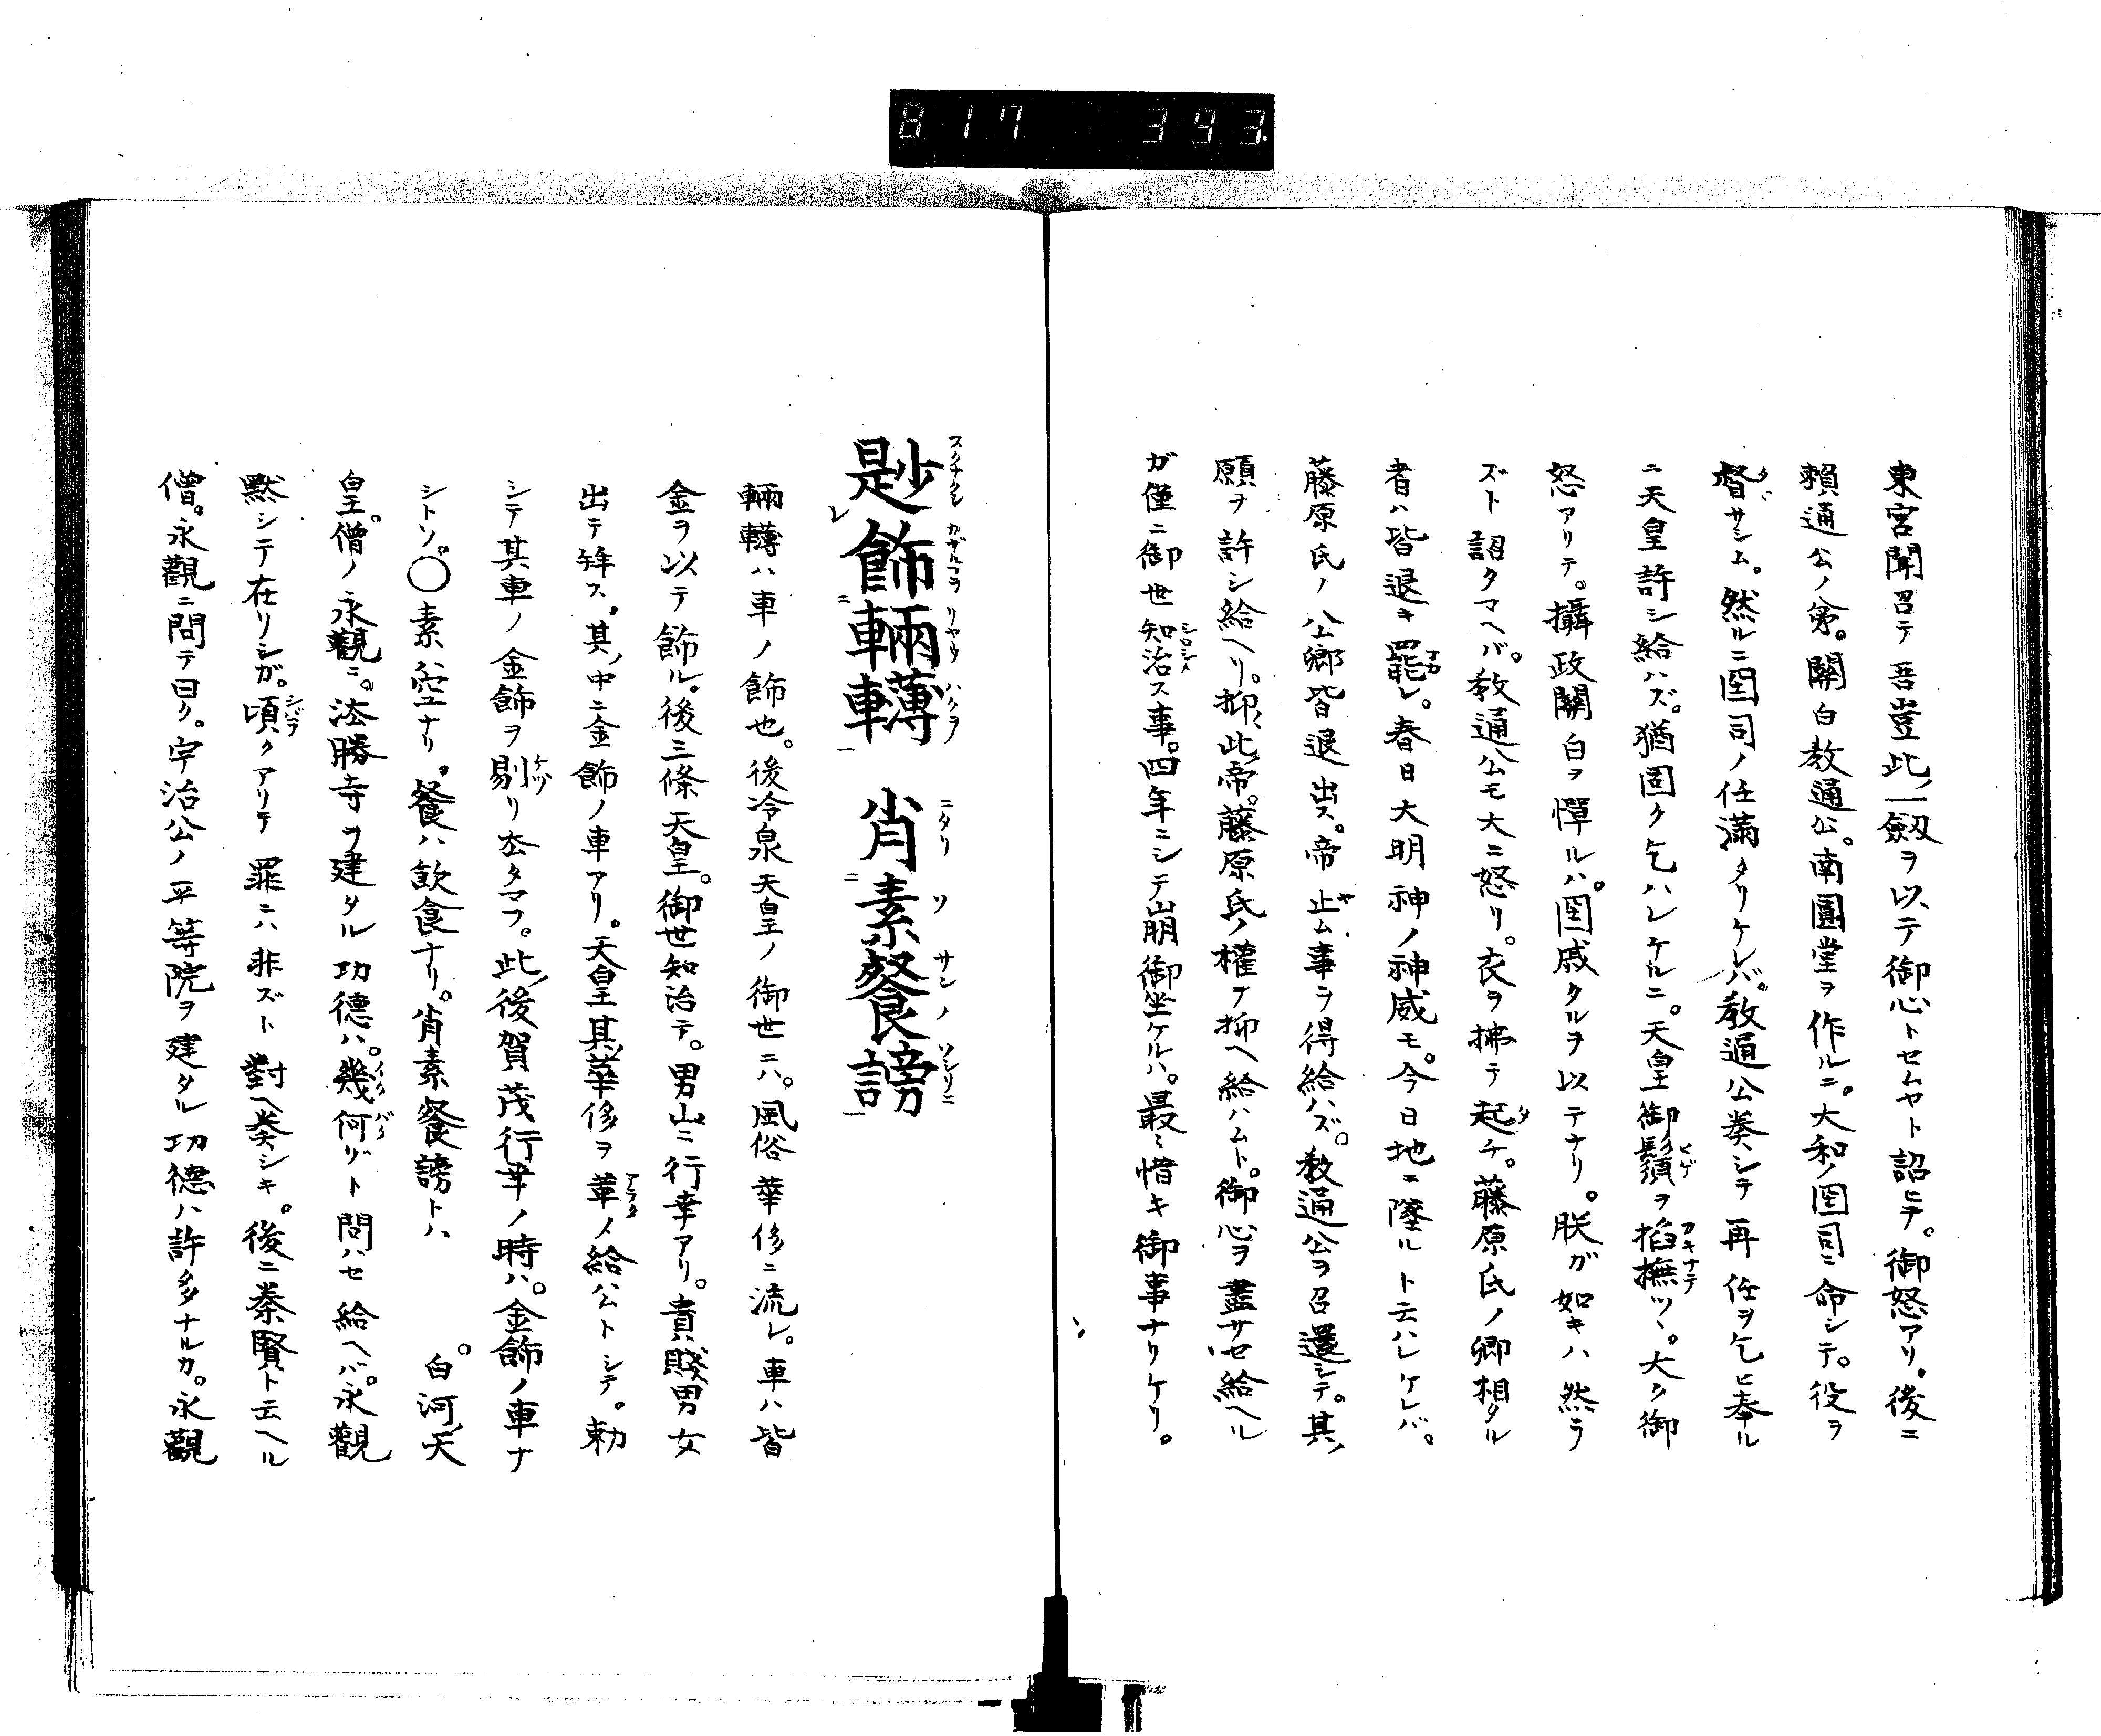 817 393.
東宮聞召テ吾豈此ノ一劔ヲ以テ御心トセムヤト詔ヒテ。御怒アリ。後ニ
頼通公ノ第。關白教通公。南圓堂ヲ作ルニ。大和ノ国司ニ命シテ。役ヲ
督サシム。然ルニ国司ノ任滿タリケレバ。教通公奏シテ再任ヲ乞ヒ奉ル
ニ天皇許シ給ハズ。猶固ク乞ハレケルニ。天皇御鬚ヲ掐撫ツヽ。大ク御
怒アリテ。攝政關白ヲ憚ルハ。国戚タルヲ以テナリ。朕ガ如キハ然ラ
ズト詔タマヘバ。教通公モ大ニ怒リ。衣ヲ拂テ起チ。藤原氏ノ卿相タル
者ハ皆退キ罷レ。春日大明神ノ神威モ。今日地ニ墜ルト云ハレケレバ。
藤原氏ノ公卿皆退出ス。帝止ム事ヲ得給ハズ。教通公ヲ召還シテ。其ノ
願ヲ許シ給ヘリ。抑〻此ノ帝。藤原氏ノ權ヲ抑ヘ給ハムト。御心ヲ盡サセ給ヘル
ガ僅ニ御世知治ス事。四年ニシテ崩御坐ケルハ。最〻惜キ御事ナリケリ。
尠飾輛轉 肖素餐謗
輛ハ車ノ飾也。後冷泉天皇ノ御世ニハ。風俗華侈ニ流レ。車ハ皆
金ヲ以テ飾ル。後三條天皇。御世知治テ。男山ニ行幸アリ。貴賤男女
出テ拜ス。其ノ中ニ金飾ノ車アリ。天皇其ノ華侈ヲ革メ給ハムトシテ。勅
シテ其車ノ金飾ヲ剔リ厺タマフ。此ノ後賀茂行幸ノ時ハ。金飾ノ車ナ
シトソ。〇素ハ空ナリ。餐ハ飲食ナリ。肖素餐謗トハ。白河ノ天
皇。僧ノ永觀ニ。法勝寺ヲ建タル功德ハ。幾何ゾト問ハセ給ヘバ。永觀
黙シテ在リシガ。頃クアリテ罪ニハ非ズト對ヘ奏シキ。後ニ奏賢ト云ヘル
僧。永觀ニ問テ曰ク。宇治公ノ平等院ヲ建タル功德ハ許多ナルカ。永觀